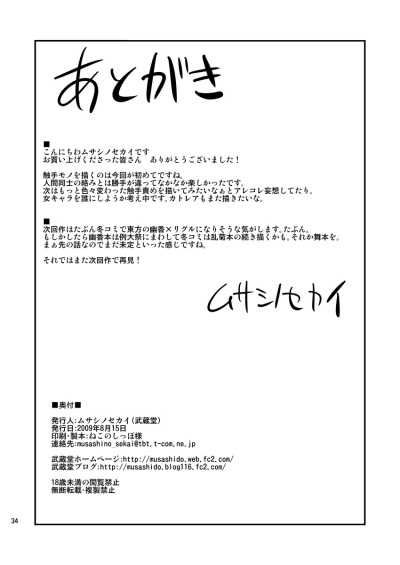 あとがき
■
こんにちわムサシノセカイです
お買い上げくださった皆さん　ありがとうございました！
触手モノを描くのは今回が初めてですね。
人間同士の絡みとは勝手が違ってなかなか楽しかったです。
次はもっと色々変わった触手責めを描いてみたいなぁとアレコレ妄想してたり。
女キャラを誰にしようか考え中です。カトレアもまた描きたいな。
■
次回作はたぶん冬コミで東方の幽香×リグルになりそうな気がします。たぶん。
もしかしたら幽香本は例大祭にまわして冬コミは乱菊本の続き描くかも。それか舞本を。
まぁ先の話なのでまだ未定といった感じですね。
それではまた次回作で再見！
ムサシノセカイ
■奥付■
発行人:ムサシノセカイ(武蔵堂)
発行日:2009年8月15日
印刷・製本:ねこのしっぽ様
連絡先:musashino_sekai@tbt.t-com.ne.jp
武蔵堂ホームページ:http://musashido.web.fc2.com/
武蔵堂ブログ:http://musashido.blog116.fc2.com/
18歳未満の閲覧禁止
無断転載・複製禁止
34